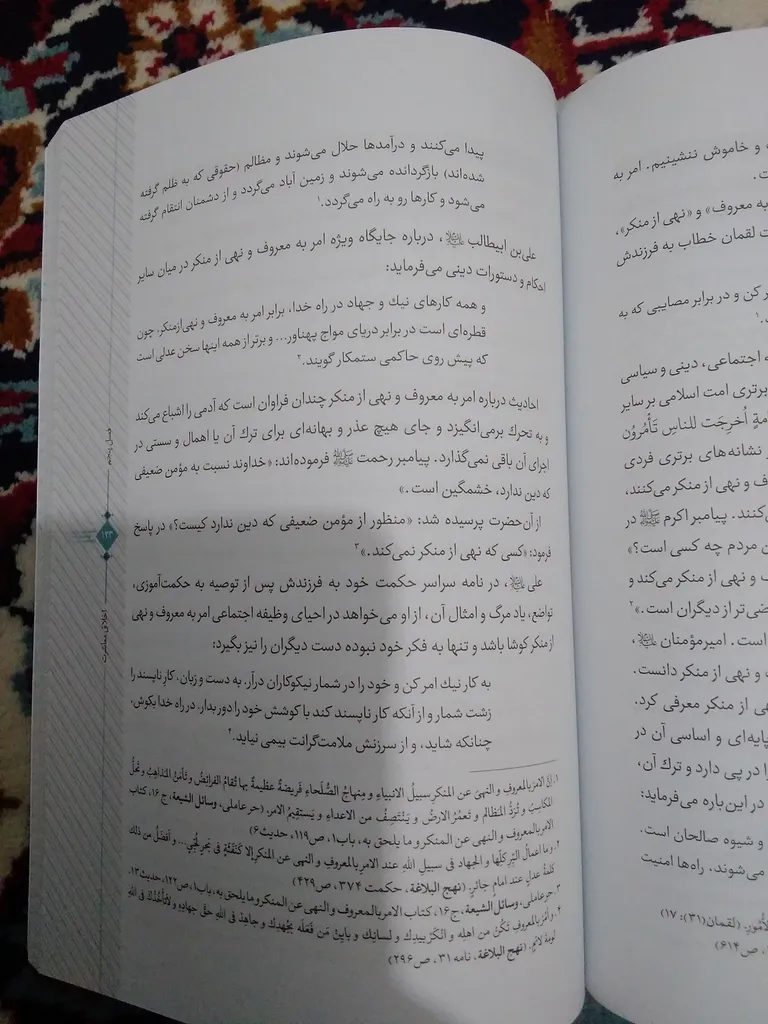 پیدا می‌کنند و درآمدها حلال می‌شوند و مظالم (حقوقی که به ظلم گرفته
شده‌اند) بازگردانده می‌شوند و زمین آباد می‌گردد و از دشمنان انتقام گرفته
می‌شود و کارها رو به راه می‌گردد.۱
علی‌بن ابیطالب ، درباره جایگاه ویژه امر به معروف و نهی از منکر در میان سایر
احکام و دستورات دینی می‌فرماید:
و همه کارهای نیك و جهاد در راه خدا، برابر امر به معروف و نهی‌ازمنکر، چون
قطره‌ای است در برابر دریای مواج پهناور... و برتر از همه اینها سخن عدلی است
که پیش روی حاکمی ستمکار گویند.۲
احادیث درباره امر به معروف و نهی از منکر چندان فراوان است که آدمی را اشباع می‌کند
و به تحرك برمی‌انگیزد و جای هیچ عذر و بهانه‌ای برای ترك آن یا اهمال و سستی در
اجرای آن باقی نمی‌گذارد. پیامبر رحمت ﷺ فرموده‌اند: «خداوند نسبت به مؤمن ضعیفی
که دین ندارد، خشمگین است.»
از آن‌حضرت پرسیده شد: «منظور از مؤمن ضعیفی که دین ندارد کیست؟» در پاسخ
فرمود: «کسی که نهی از منکر نمی‌کند.»۳
علی ، در نامه سراسر حکمت خود به فرزندش پس از توصیه به حکمت‌آموزی،
تواضع، یاد مرگ و امثال آن، از او می‌خواهد در احیای وظیفه اجتماعی امر به معروف و نهی
از منکر کوشا باشد و تنها به فکر خود نبوده دست دیگران را نیز بگیرد:
به کار نیك امر کن و خود را در شمار نیکوکاران درآر. به دست و زبان، کار ناپسند را
زشت شمار و از آنکه کار ناپسند کند با کوشش خود را دور بدار. در راه خدا بکوش،
چنانکه شاید، و از سرزنش ملامت‌گرانت بیمی نیاید.۴
۱. إنَّ الامرَ بالمعروفِ و النهیَ عن المنکرِ سبیلُ الانبیاءِ و مِنهاجُ الصُّلَحاءِ فَریضةٌ عظیمةٌ بها تُقامُ الفرائضُ و تَأمَنُ المَذاهِبُ و تَحِلُّ
المکاسِبُ و تُرَدُّ المَظالمُ و تَعمُرُ الارضُ و یَنتَصِفُ من الاعداءِ و یَستَقیمُ الامرُ. (حر عاملی، وسائل الشیعة، ج ۱۶، کتاب
الامر بالمعروف و النهی عن المنکر و ما یلحق به، باب۱، ص۱۱۹، حدیث۶)
۲. و ما اعمالُ البِرِّ کلُّها و الجهادِ فی سبیلِ اللهِ عند الامرِ بالمعروفِ و النهیِ عن المنکرِ إلّا کَنَفثَةٍ فی بَحرٍ لُجِّیٍّ... و أفضَلُ من ذلك
کلمةُ عدلٍ عند امامٍ جائرٍ. (نهج البلاغة، حکمت ۳۷۴، ص۴۲۹)
۳. حر عاملی، وسائل الشیعة، ج۱۶، کتاب الامر بالمعروف و النهی عن المنکر و ما یلحق به، باب۱، ص۱۲۲، حدیث۱۳.
۴. و أمُر بالمعروفِ تَکُن من اهلِه و انکَرِ بیدِك و لسانِك و باین مَن فَعَلَه بِجُهدِك و جاهِد فی اللهِ حقَّ جهادِهِ و لا تَأخُذْكَ فی اللهِ
لومةُ لائمٍ. (نهج البلاغة، نامه ۳۱، ص۲۹۶)
فصل پنجم
۱۲۳
اخلاق معاشرت
و خاموش ننشینیم. امر به
ت.
به معروف» و «نهی از منکر»،
ت لقمان خطاب به فرزندش
ر کن و در برابر مصایبی که به
.۱
ه اجتماعی، دینی و سیاسی
برتری امت اسلامی بر سایر
أُخرِجَت لِلناسِ تَأمُرُون
ر نشانه‌های برتری فردی
ف و نهی از منکر می‌کنند،
کنند. پیامبر اکرم ﷺ در
ن مردم چه کسی است؟»
ف و نهی از منکر می‌کند و
ضی‌تر از دیگران است.»۲
است. امیرمؤمنان ،
و نهی از منکر دانست.
هی از منکر معرفی کرد.
پایه‌ای و اساسی آن در
را در پی دارد و ترك آن،
در این‌باره می‌فرماید:
و شیوه صالحان است.
می‌شوند، راه‌ها امنیت
لأُمُورِ. (لقمان(۳۱): ۱۷)
، ص۶۱۴)